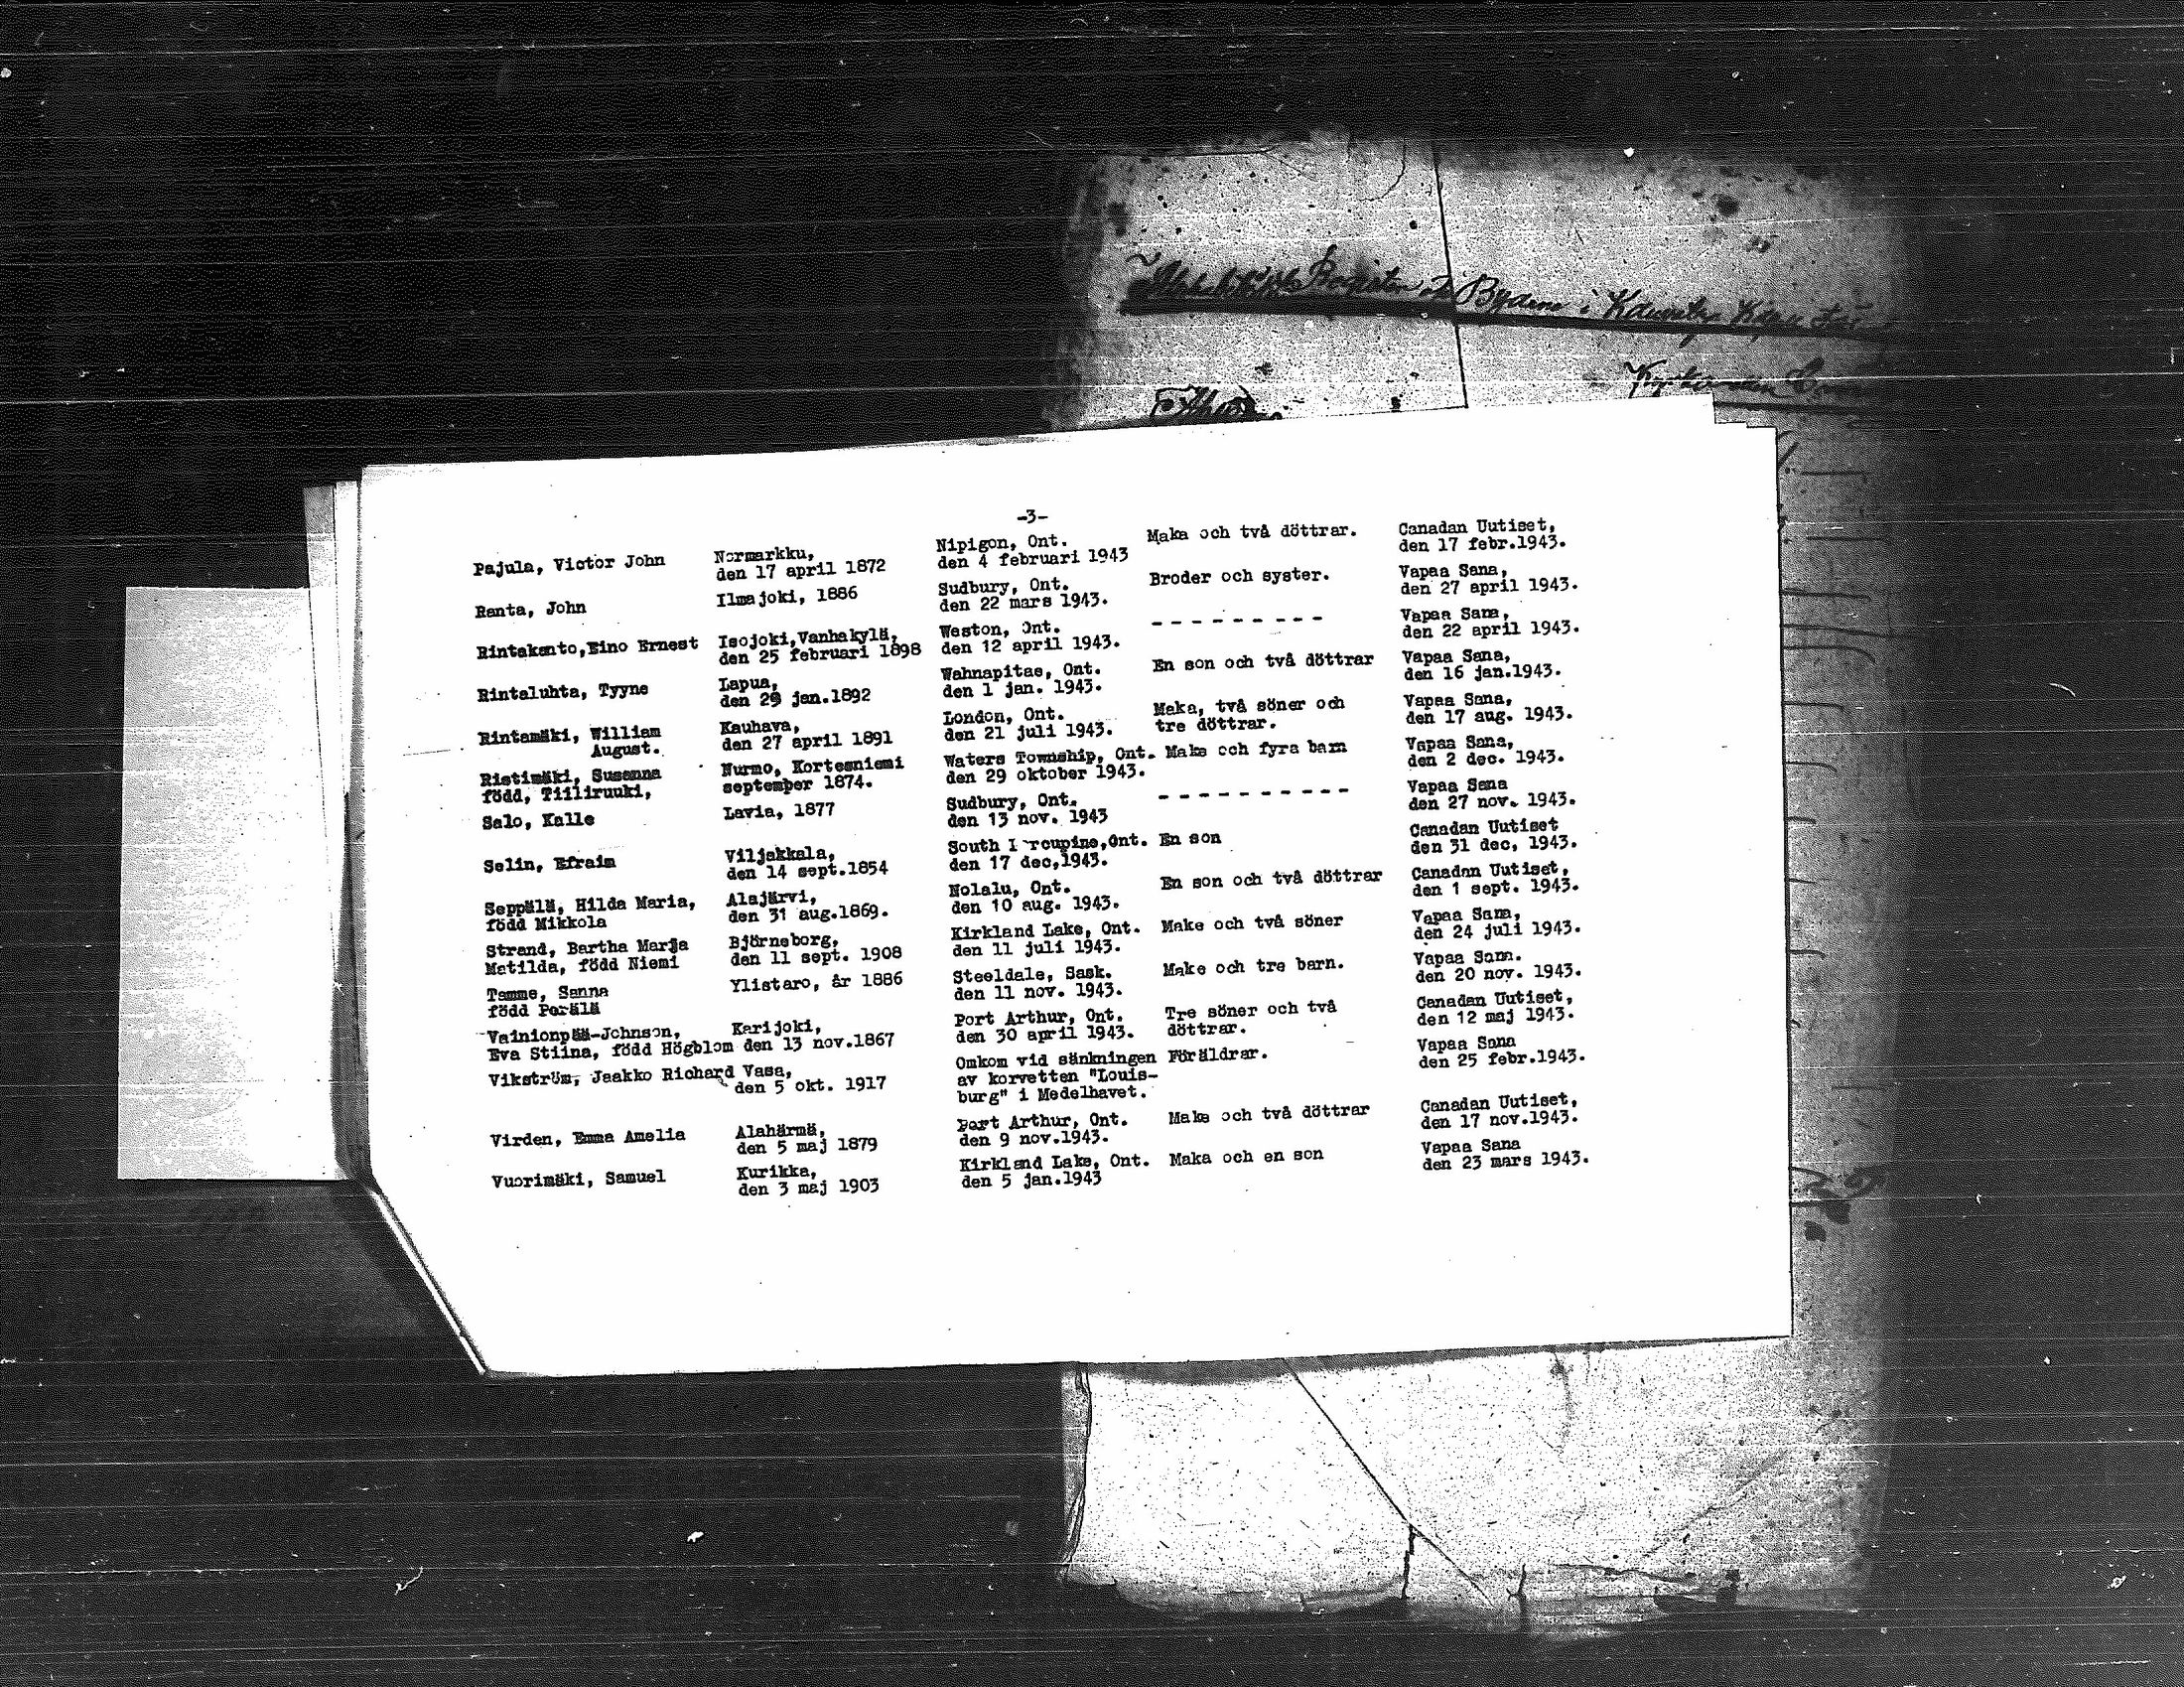 -3-
Pajula, Victor John Normarkku, Nipigon, Ont. Maka och två döttrar. Canadan Uutiset,
den 17 april 1872 den 4 februari 1943 den 17 febr.1943.
Ranta, John Ilmajoki, 1886 Sudbury, Ont. Broder och syster. Vapaa Sana,
den 22 mars 1943. den 27 april 1943.
Rintakanto,Eino Ernest Isojoki,Vanhakylä, Weston, Ont. - - - - - - - - - Vapaa Sana,
den 25 februari 1898 den 12 april 1943. den 22 april 1943.
Rintaluhta, Tyyne Lapua, Wahnapitae, Ont. En son och två döttrar Vapaa Sana,
den 29 jan.1892 den 1 jan. 1943. den 16 jan.1943.
Rintamäki, William Kauhava, London, Ont. Maka, två söner och Vapaa Sana,
August. den 27 april 1891 den 21 juli 1943. tre döttrar. den 17 aug. 1943.
Ristimäki, Susanna Nurmo, Kortesniemi Waters Township, Ont. Make och fyra barn Vapaa Sana,
född, Tiiliruuki, september 1874. den 29 oktober 1943. den 2 dec. 1943.
Salo, Kalle Lavia, 1877 Sudbury, Ont. - - - - - - - - - - Vapaa Sana
den 13 nov. 1943 den 27 nov. 1943.
Selin, Efraim Viljakkala, South ,Ont. En son Canadan Uutiset
den 14 sept.1854 den 17 dec,1943. den 31 dec, 1943.
Seppälä, Hilda Maria, Alajärvi, Nolalu, Ont. En son och två döttrar Canadan Uutiset,
född Mikkola den 31 aug.1869. den 10 aug. 1943. den 1 sept. 1943.
Strand, Bertha Marja Björneborg, Kirkland Lake, Ont. Make och två söner Vapaa Sana,
Matilda, född Niemi den 11 sept. 1908 den 11 juli 1943. den 24 juli 1943.
Tamme, Sanna Ylistaro, år 1886 Steeldale, Sask. Make och tre barn. Vapaa Sana.
född Perälä den 11 nov. 1943. den 20 nov. 1943.
Vainionpää-Johnson, Karijoki, Port Arthur, Ont. Tre söner och två Canadan Uutiset,
Eva Stiina, född Högblom den 13 nov.1867 den 30 april 1943. döttrar. den 12 maj 1943.
Vikström, Jaakko Richard Vasa, Omkom vid sänkningen Föräldrar. Vapaa Sana
den 5 okt. 1917 av korvetten "Louis- den 25 febr.1943.
burg" i Medelhavet.
Virden, Emma Amelia Alahärmä, Port Arthur, Ont. Make och två döttrar Canadan Uutiset,
den 5 maj 1879 den 9 nov.1943. den 17 nov.1943.
Vuorimäki, Samuel Kurikka, Kirkland Lake, Ont. Maka och en son Vapaa Sana
den 3 maj 1903 den 5 jan.1943 den 23 mars 1943.
29